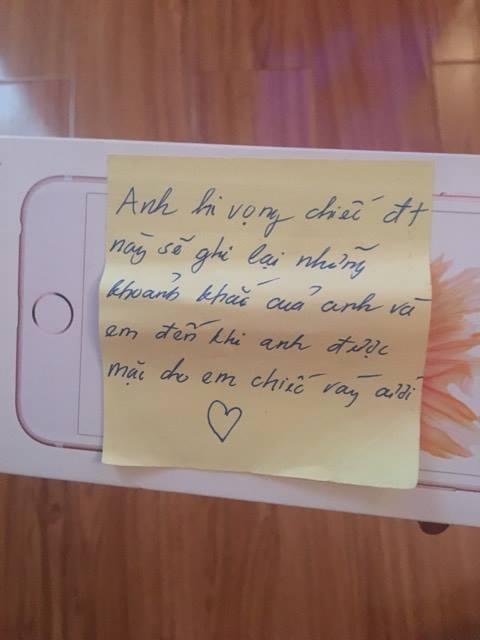 Anh hi vọng chiếc đt
này sẽ ghi lại những
khoảnh khắc của anh và
em đến khi anh được
mặc cho em chiếc váy cưới